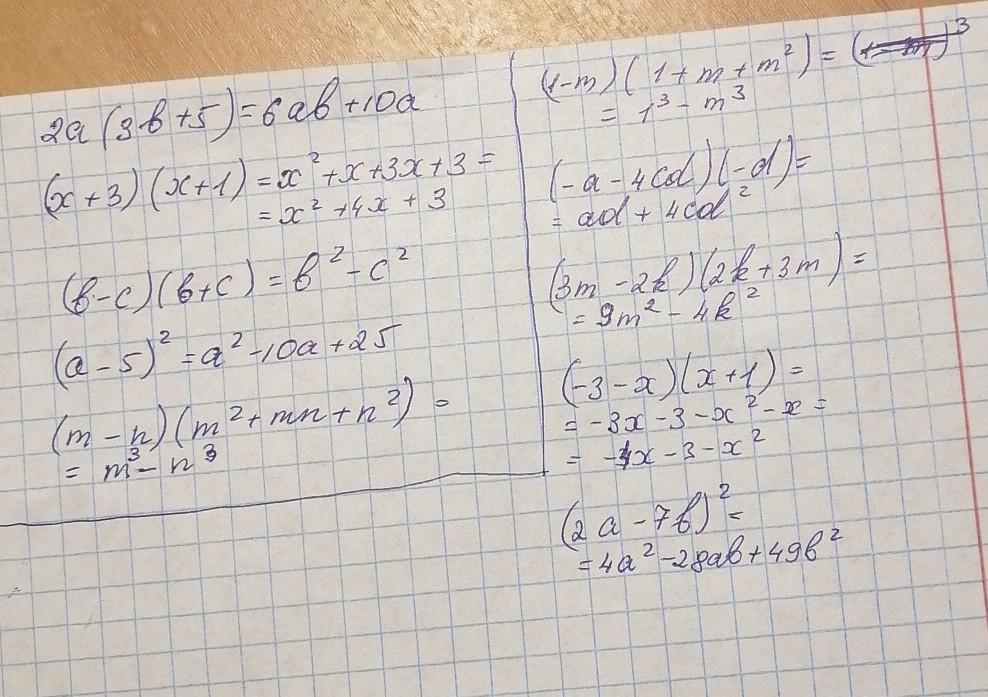 2a(3b+5)=6ab+10a
(x+3)(x+1)=x²+x+3x+3=
=x²+4x+3
(b-c)(b+c)=b²-c²
(a-5)²=a²-10a+25
(m-n)(m²+mn+n²)=
=m³-n³
(1-m)(1+m+m²)=( )³
=1³-m³
(-a-4cd)(-d)=
=ad+4cd²
(3m-2k)(2k+3m)=
=9m²-4k²
(-3-x)(x+1)=
=-3x-3-x²-x=
=-4x-3-x²
(2a-7b)²=
=4a²-28ab+49b²